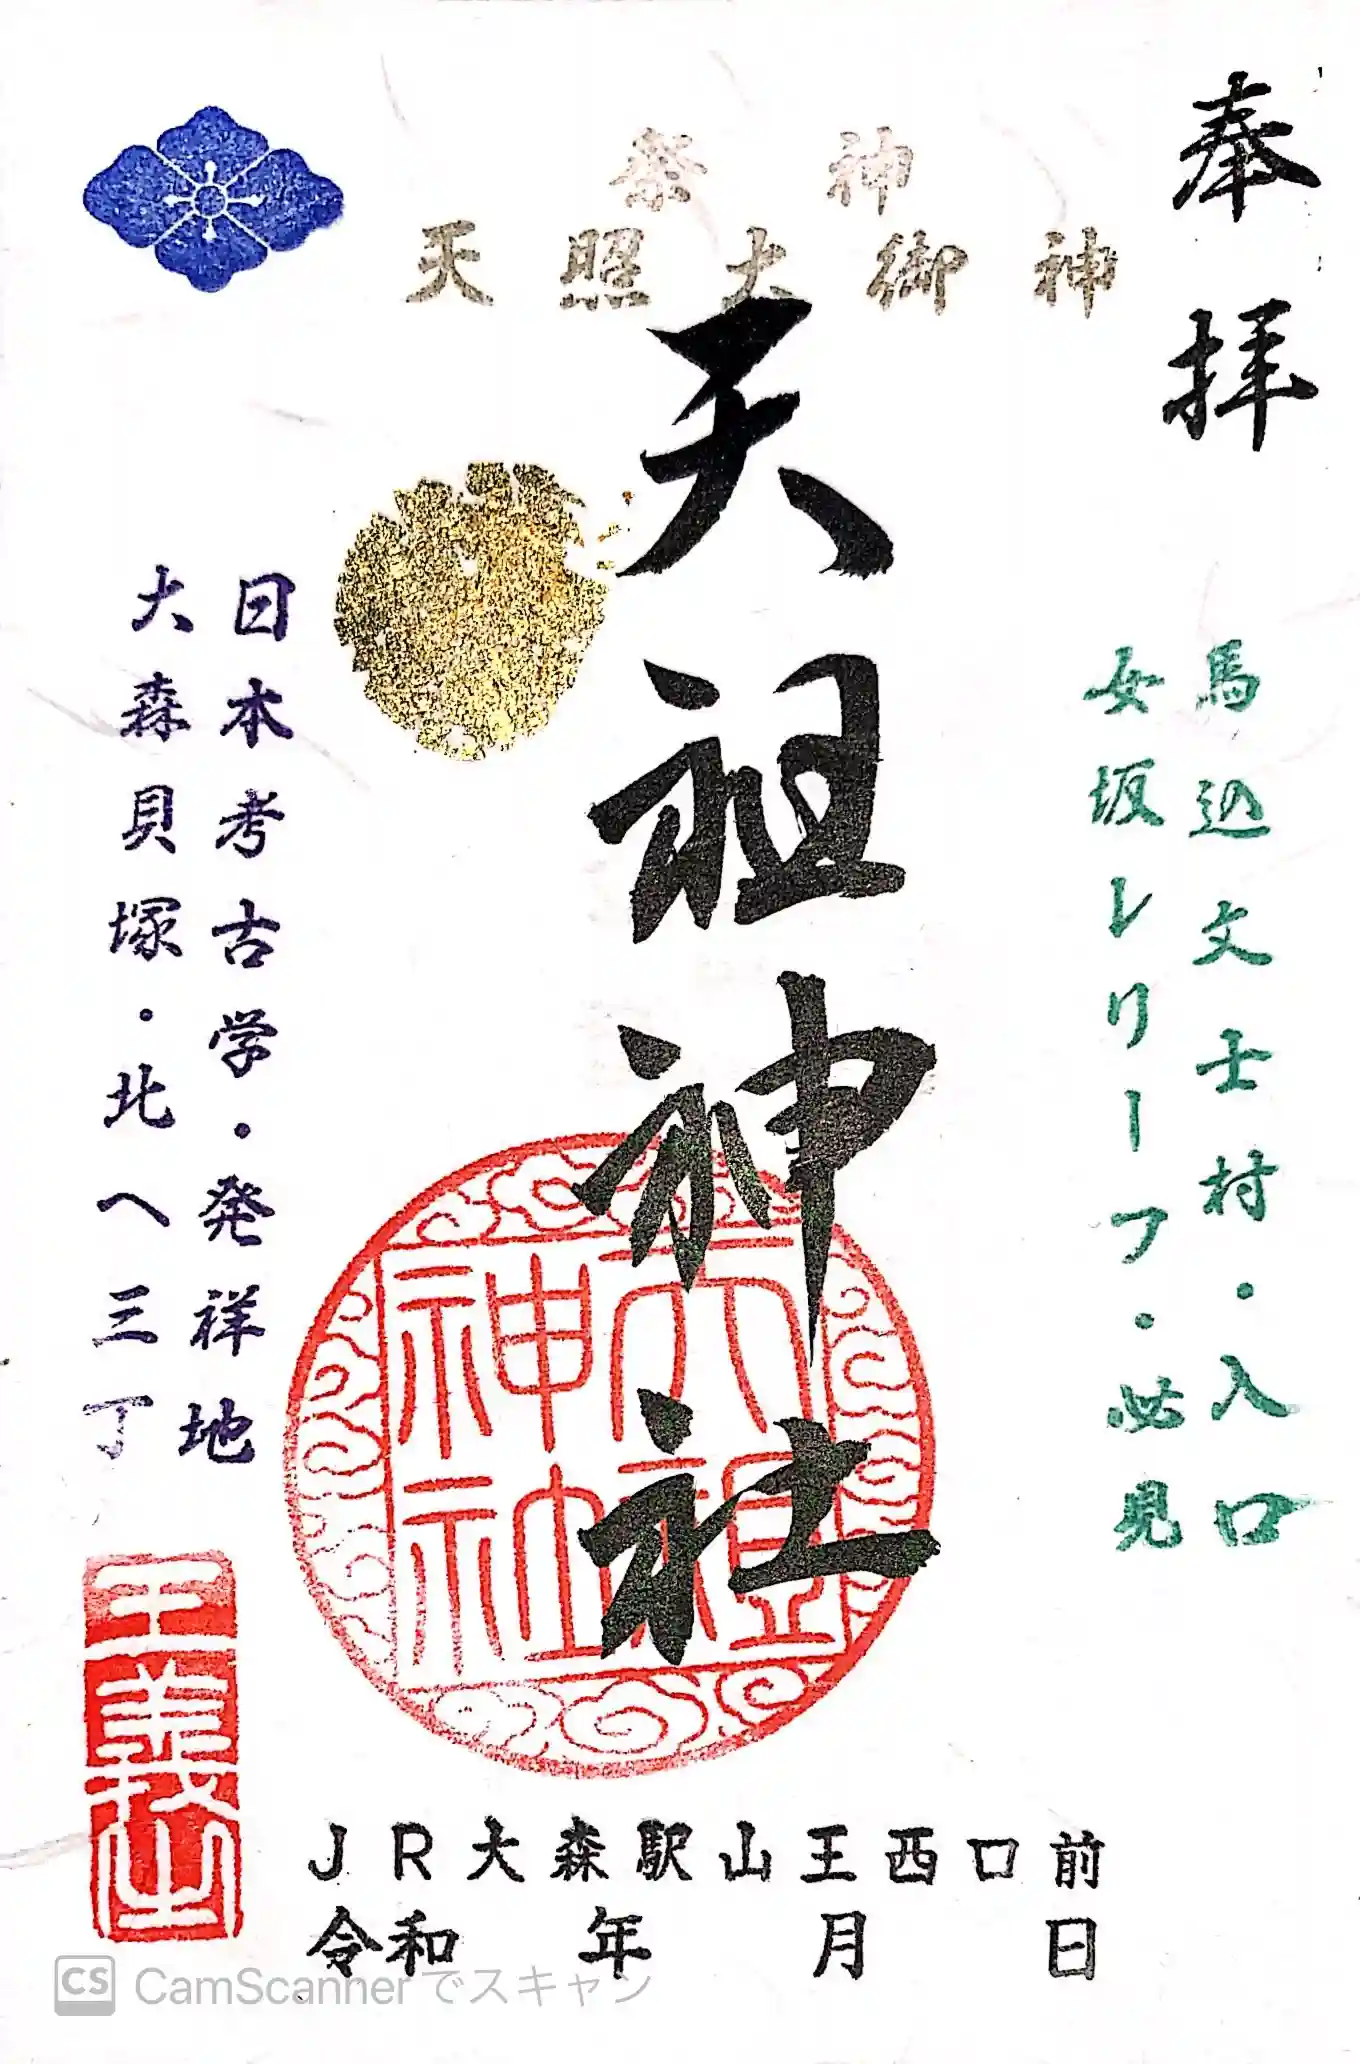 奉拝
祭神
天照大御神
天祖神社
馬込文士村・入口
女坂レリーフ・必見
日本考古学・発祥地
大森貝塚・北へ三丁
天祖
神社
JR大森駅山王西口前
令和 年 月 日
CS CamScannerでスキャン